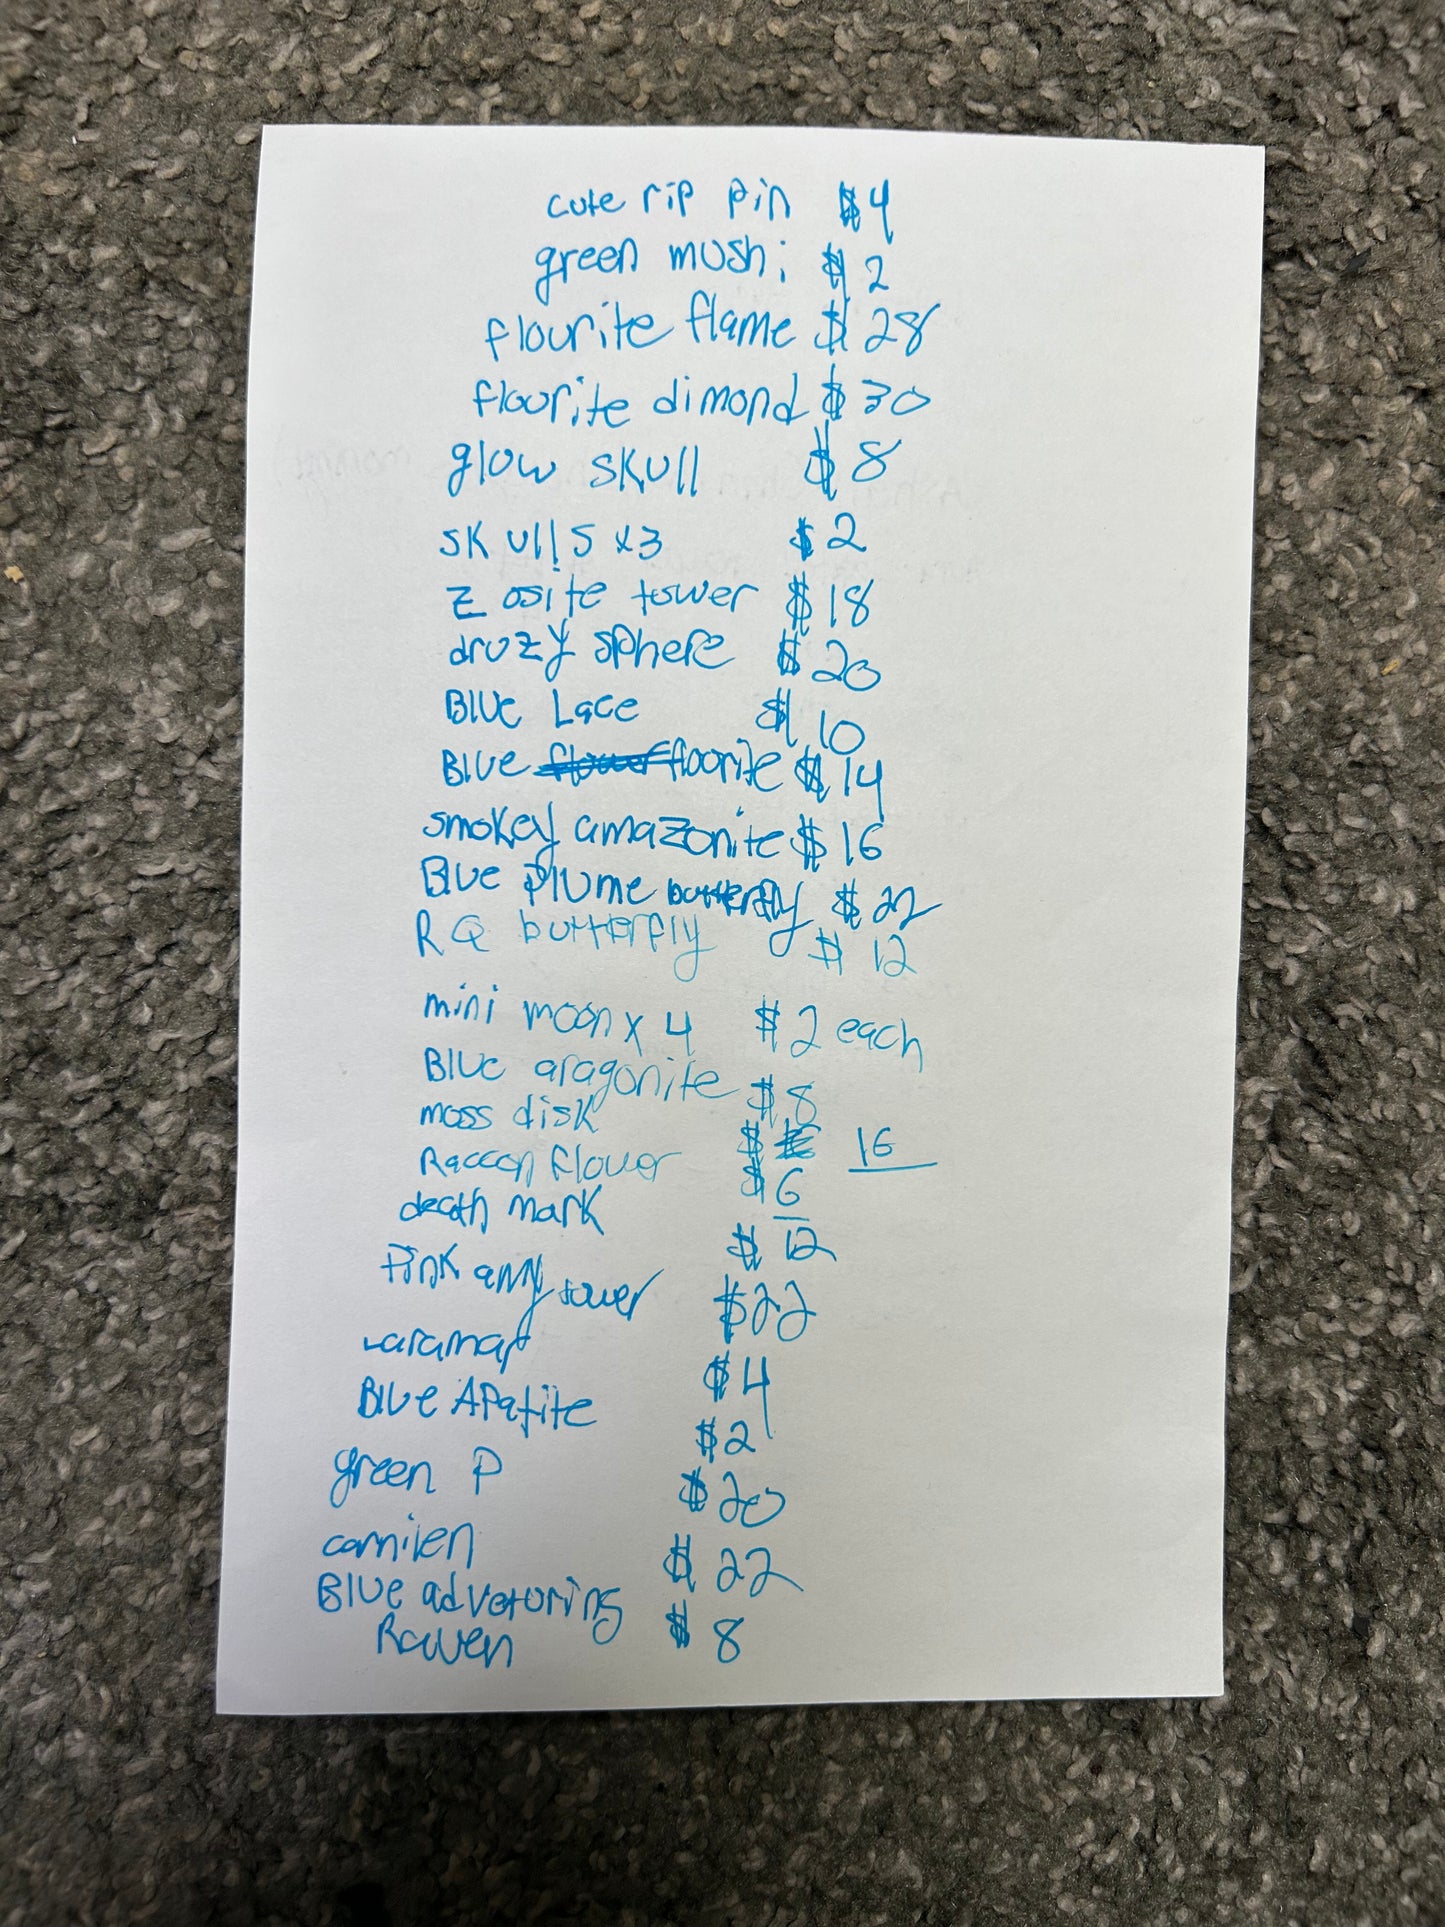 cute rip pin $4
green mushi $2
flourite flame $28
flourite dimond $30
glow skull $8
skulls x3 $2
Zosite tower $18
druzy sphere $20
Blue Lace $10
Blue flower floorite $14
smokey amazonite $16
Blue Plume butterfly $22
RQ butterfly $12
mini moon x 4 $2 each
Blue aragonite $8
moss disk $ 16
Raccon flower $6
death mark $12
Pink amy tower $22
$4
Blue Apatite $2
green P $20
camilen $22
Blue adveturing $8
Raven